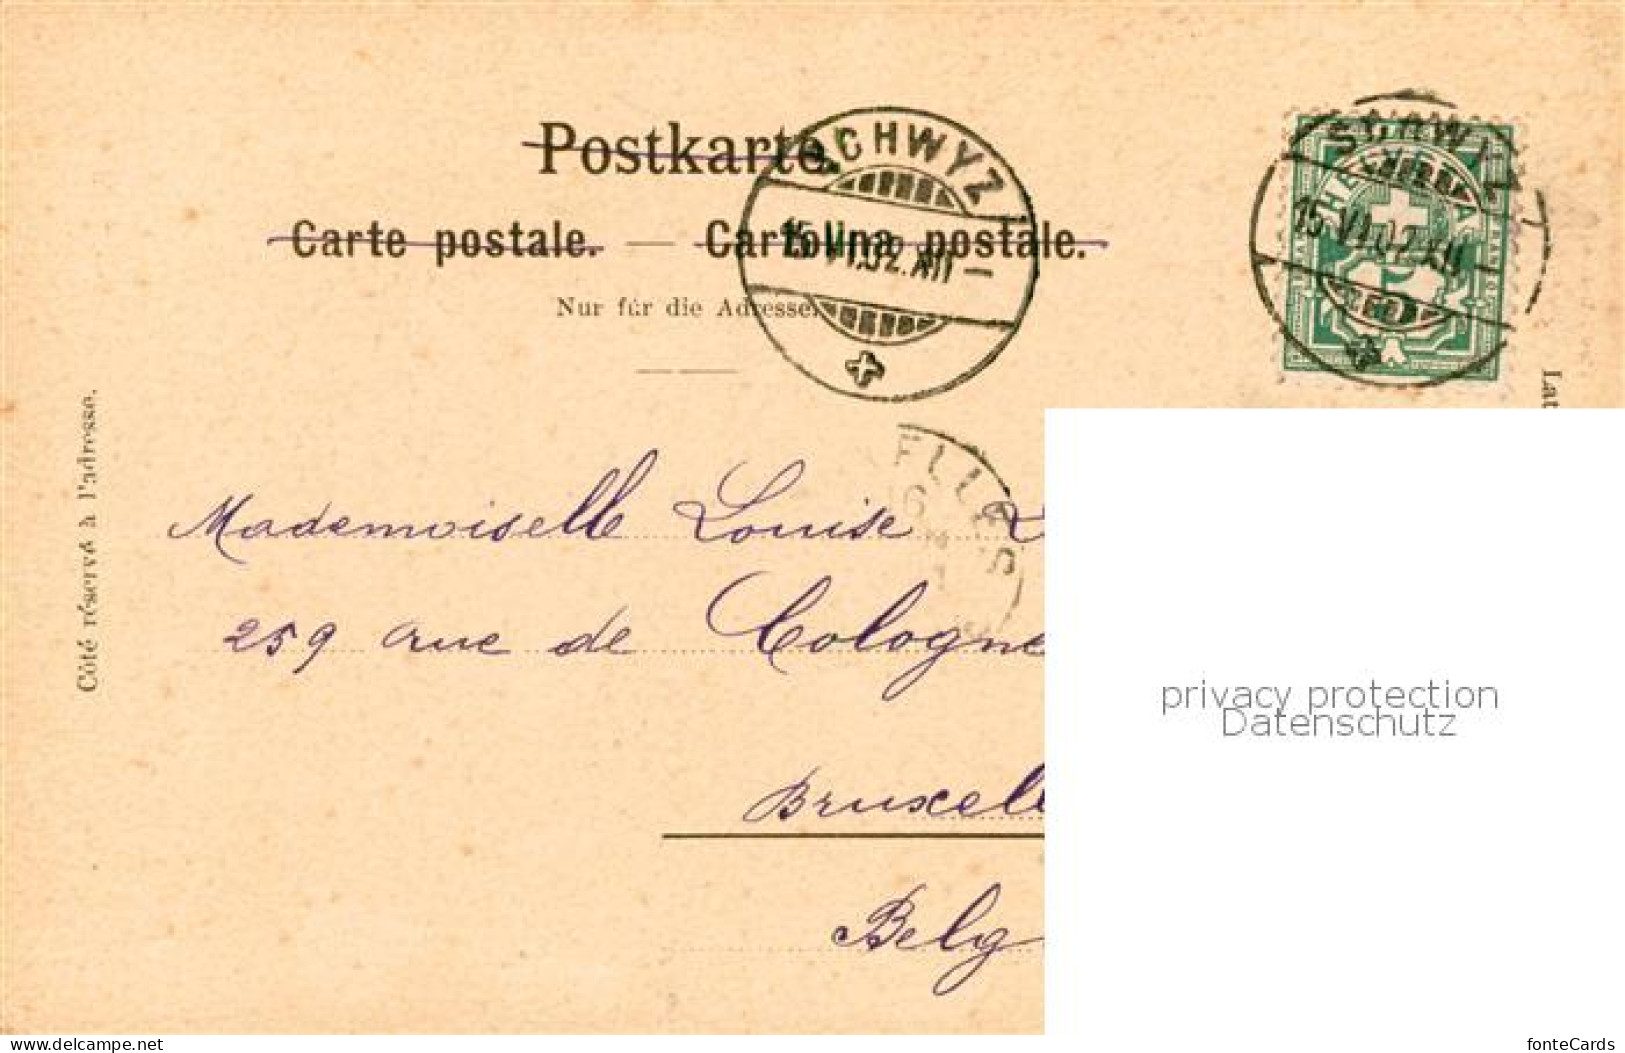 Postkarte.
Carte postale. — Cartolina postale.
Nur für die Adresse.
SCHWYZ
15.VI.02.XII —
SCHWYZ
15.VI.02.XII —
HELVETIA
FRANCO
Côté réservé à l'adresse.
Lat
ELLES
16
Mademoiselle Louise
259 rue de Cologne
Bruxell
Belg
privacy protection
Datenschutz
www.delcampe.net
fonteCards